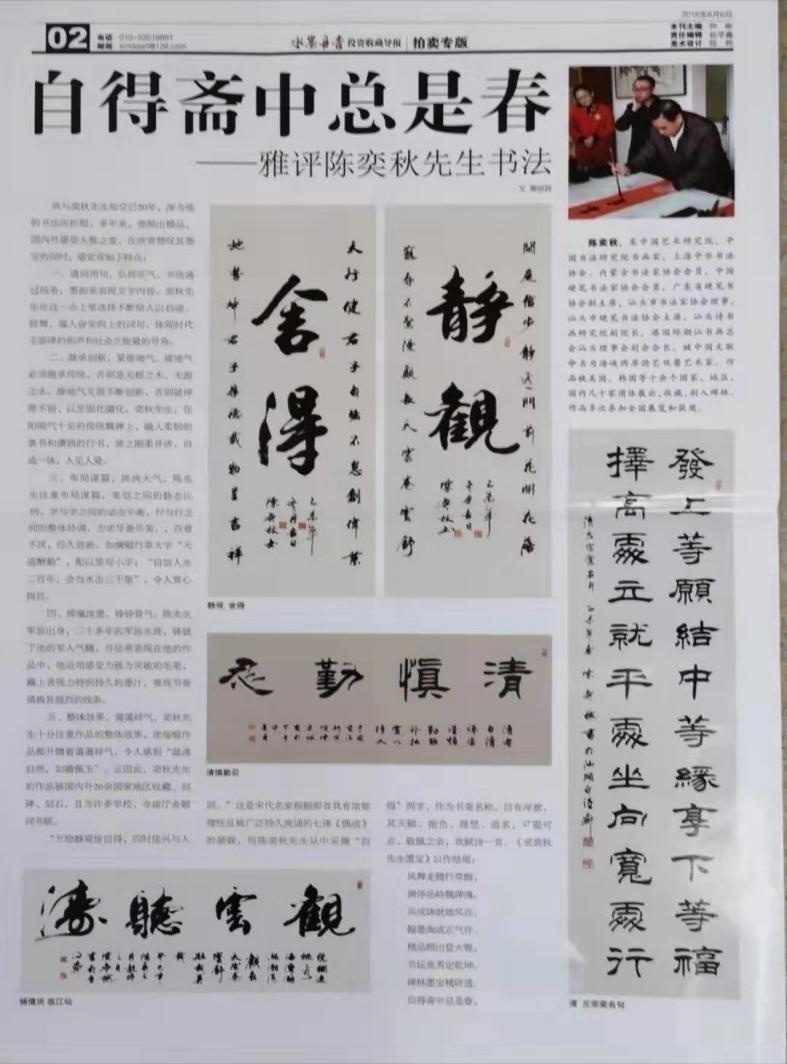 2016年6月6日
02
电话 010-53518881
邮箱
水墨丹青 投资收藏导报 拍卖专版
本刊主编
责任编辑
美术设计
自得斋中总是春
——雅评陈奕秋先生书法
陈奕秋，系中国艺术研究院、中
国书法研究院书画家，上海中华书法
协会、内蒙古书法家协会会员，中国
硬笔书法家协会会员，广东省硬笔书
协会副主席，汕头市书法家协会理事，
汕头市硬笔书法协会主席，汕头诗书
画研究院副院长，港国际潮汕书画总
会汕头理事会副会会长，被中国文联
命名为海峡两岸德艺双馨艺术家，作
品被美国、韩国等十余个国家、地区，
国内几十家团体展出、收藏，刻入碑林，
作品多次参加全国展览和获奖。
我与奕秋先生知交已20年，深为他
的书法所折服，多年来，他频出精品，
国内外屡登大雅之堂，在欣赏赞叹其墨
宝的同时，感觉有如下特点：
一、遣词用句，弘扬宏气。书法通
过线条、墨韵来表现文字内容。奕秋先
生在这一点上常选择不断给人以启迪、
鼓舞、催人奋发向上的词句，体现时代
主旋律的和声和社会正能量的号角。
二、继承创新，紧接地气。接地气
必须继承传统，否则是无根之木、无源
之水。接地气又须不断创新，否则就停
滞不前，以至固化僵化。奕秋先生，在
阳刚气十足的传统魏碑上，融入柔韧的
隶书和潇洒的行书，使之刚柔并济，自
成一体，人见人爱。
三、布局谋篇，泱泱大气。陈先
生注重布局谋篇，笔划之间的静态比
例，字与字之间的动态平衡，行与行之
间的整体协调，力求尽善尽美，百看
不厌，经久弥新。如横幅行草大字“天
道酬勤”，配以竖写小字：“自信人生
二百年，会当水击三千里”，令人赏心
悦目。
四、挥毫泼墨，铮铮骨气。陈先生
军旅出身，二十多年的军旅生涯，铸就
了他的军人气概，并经常表现在他的作
品中，他运用感受力极为灵敏的毛笔，
蘸上表现力特别持久的墨汁，展现书家
感极其强烈的线条。
五、整体效果，蔼蔼祥气。奕秋先
生十分注重作品的整体效果，使每幅作
品都升腾着蔼蔼祥气，令人感到“温清
自然，如瞻佩玉”。正因此，奕秋先生
的作品被国内外20余国家地区收藏、刻
碑、刻石，且为许多学校、寺庙厅舍题
词书联。
“万物静观皆自得，四时佳兴与人
同。”这是宋代名家程颢那首具有浓郁
理性且被广泛持久流诵的七律《偶成》
的颔联，而陈奕秋先生从中采撷“自
得”两字，作为书斋名称，自有深意，
其天赋、抱负、理想、追求，窥可
点，敬佩之余，我赋诗一首，《观奕秋
先生墨宝》以作结尾：
凤舞龙腾行草醇，
渊停岳峙魏碑魂。
兵戎铸就雄风在，
翰墨淘成正气存。
精品频出登大雅，
书坛竞秀定乾坤。
碑林墨宝精研透，
自得斋中总是春。
舍得
天行健君子自强不息创伟业
地势坤君子厚德载物呈吉祥
乙未年
陈奕秋书
静观
闲庭信步静观门前花开花落
宠辱不惊漫观天云卷云舒
乙未年
陈奕秋书
静观 舍得
清慎勤忍
清慎勤忍
观云听涛
杨慎词 临江仙
发上等愿结中等缘享下等福
择高处立就平处坐向宽处行
清 左宗棠名句